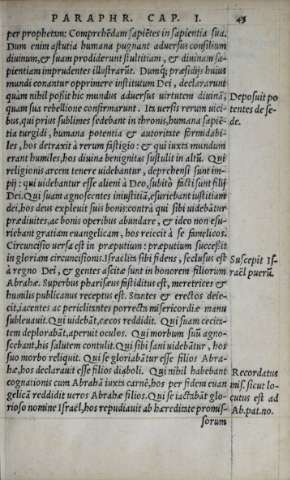 PARAPHR. CAP. I. 45
per prophetam: Comprehẽdam sapiẽtes in sapientia sua.
Dum enim astutia humana pugnant aduersus consilium
diuinum, & suam prodiderunt stultitiam, & diuinam sa-
pientiam imprudentes illustrarũt. Dumq; præsidijs huius
mundi conantur opprimere institutum Dei, declararunt
quàm nihil possit hic mundus aduersus uirtutem diuinã,
quam sua rebellione confirmarunt. Ita uersis rerum uici-
bus, qui prius sublimes sedebant in thronis, humana sapiẽ-
tia turgidi, humana potentia & autoritate formidabi-
les, hos detraxit à rerum fastigio: & qui iuxta mundum
erant humiles, hos diuina benignitas sustulit in altũ. Qui
religionis arcem tenere uidebantur, deprehensi sunt im-
pij: qui uidebantur esse alieni à Deo, subitò facti sunt filij
Dei. Qui suam agnoscentes iniustitiã, esuriebant iustitiam
dei, hos deus expleuit suis bonis: contrà qui sibi uidebãtur
prædiuites, ac bonis operibus abundare, & ideo non esu-
riebant gratiam euangelicam, hos reiecit à se famelicos.
Circuncisio uersa est in præputium: præputium successit
in gloriam circuncisionis. Israelits sibi fidens, seclusus est
à regno Dei, & gentes ascitæ sunt in honorem filiorum
Abrahæ. Superbus pharisæus fastiditus est, meretrices &
humilis publicanus receptus est. Stantes & erectos deie-
cit, iacentes ac periclitantes porrecta misericordiæ manu
subleuauit. Qui uidebãt, cæcos reddidit. Qui suam cæcita-
tem deplorabãt, aperuit oculos. Qui morbum suũ agno-
scebant, his salutem contulit. Qui sibi sani uidebãtur, hos
suo morbo reliquit. Qui se gloriabãtur esse filios Abra-
hæ, hos declarauit esse filios diaboli. Qui nihil habebant
cognationis cum Abrahã iuxta carnẽ, hos per fidem euan
gelicã reddidit ueros Abrahæ filios. Qui se iactabãt glo-
rioso nomine Israel, hos repudiauit ab hæreditate promis-
sorum
Deposuit po
tentes de se-
de.
Suscepit Is-
raël puerũ.
Recordatus
mis. sicut lo-
cutus est ad
Ab. pat. no.